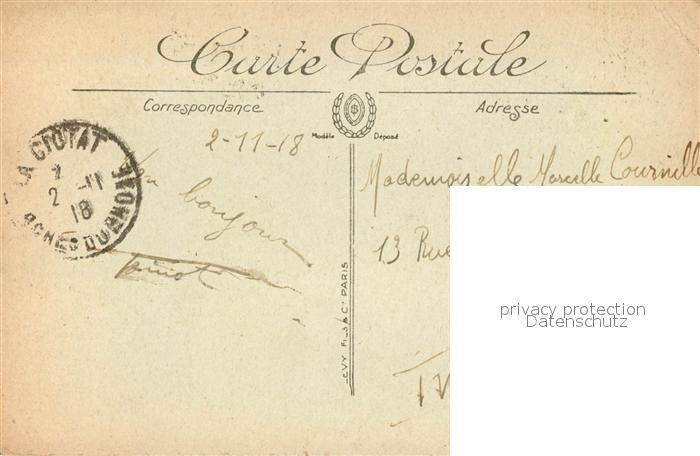 Carte Postale
Correspondance
Adresse
Modèle Déposé
2-11-18
LA CIOTAT
2 -11
18
BCHES DU RHONE
bonjour
Mademoiselle Marcelle
13 Rue
LEVY FILS & Cie PARIS
privacy protection
Datenschutz